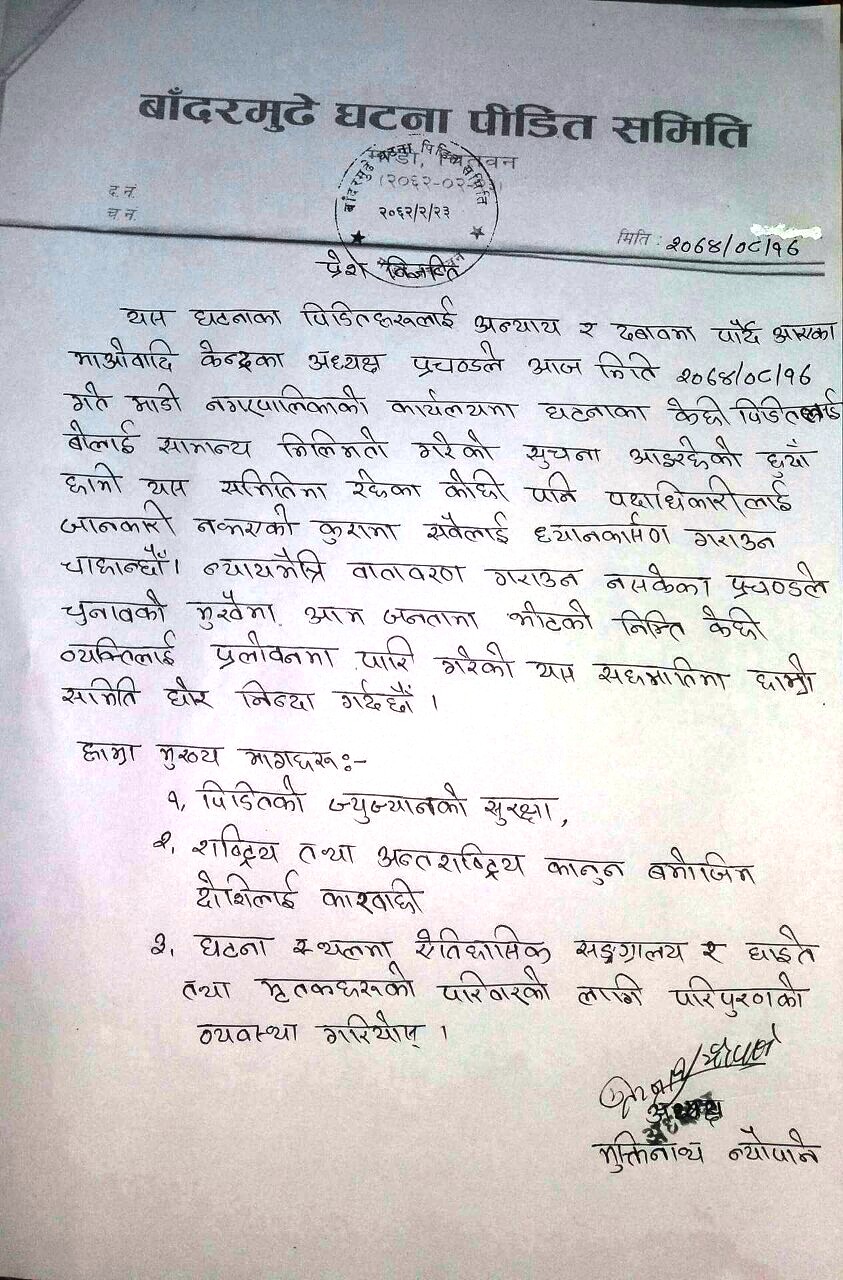 बाँदरमुढे घटना पीडित समिति
माडी, चितवन
(२०६२-०२-२३)
बाँदरमुढे घटना पिडित समिति
२०६२/२/२३
द.नं.
च.नं.
मिति : २०७४/०८/१६
प्रेश बिज्ञप्ति
यस घटनाका पिडितहरुलाई अन्याय र दबावमा पार्दै आएका
माओवादि केन्द्रका अध्यक्ष प्रचण्डले आज मिति २०७४/०८/१६
गते माडी नगरपालिकाको कार्यलयमा घटनाका केही पिडितलाई
बोलाई सामान्य मिलिमतो गरेको सुचना आइरहेको छुयाँ
हामी यस समितिमा रहेका कोही पनि पदाधिकारीलाई
जानकारी नभएको कुरामा सवैलाई ध्यानकार्सण गराउन
चाहान्छौँ। न्यायमैत्रि वातावरण गराउन नसकेका प्रचण्डले
चुनावको मुखैमा आम जनतामा भोटको निम्ति केही
व्यक्तिलाई प्रलोवनमा पारि गरेको यस सहमतिमा हाम्रो
समिति घोर निन्दा गर्दछौँ ।
हाम्रा मुख्य मागहरू:-
१, पिडितको ज्युज्यानको सुरक्षा,
२, राष्ट्रिय तथा अन्तराष्ट्रिय कानुन बमोजिम
दोशिलाई कारवाही
३, घटना स्थलमा ऐतिहासिक सङ्ग्रालय र घाइते
तथा मृतकहरुको परिवारको लागि परिपुरणको
व्यवस्था गरियोस् ।
अध्यक्ष
मुक्तिनाथ न्यौपाने